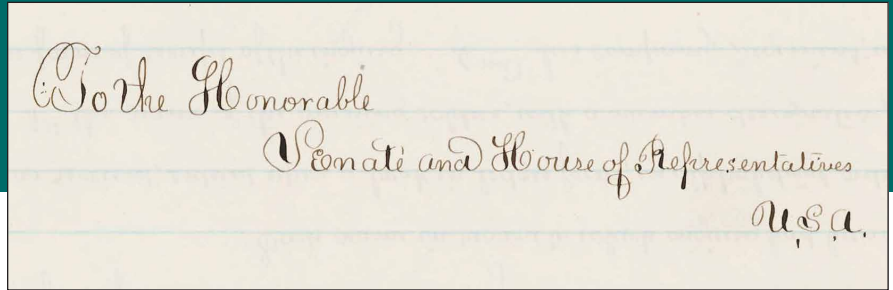 To the Honorable
Senate and House of Representatives
U.S.A.